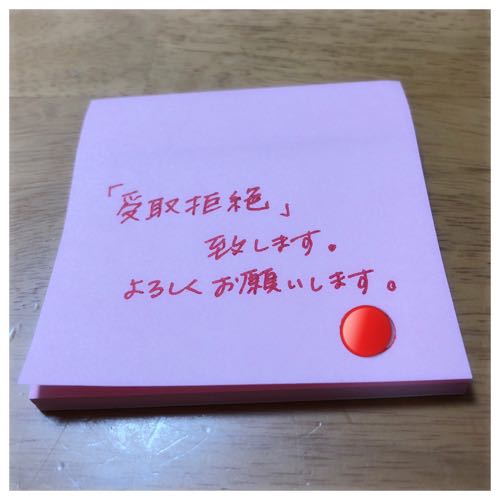 「受取拒絶」
致します。
よろしくお願いします。